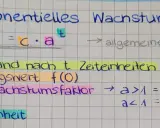 onentielles Wachstum
= c · a^t → allgemeine
and nach t Zeiteinheiten
gswert f(0)
achstumsfaktor → a>1 =
a<1 =
nheit